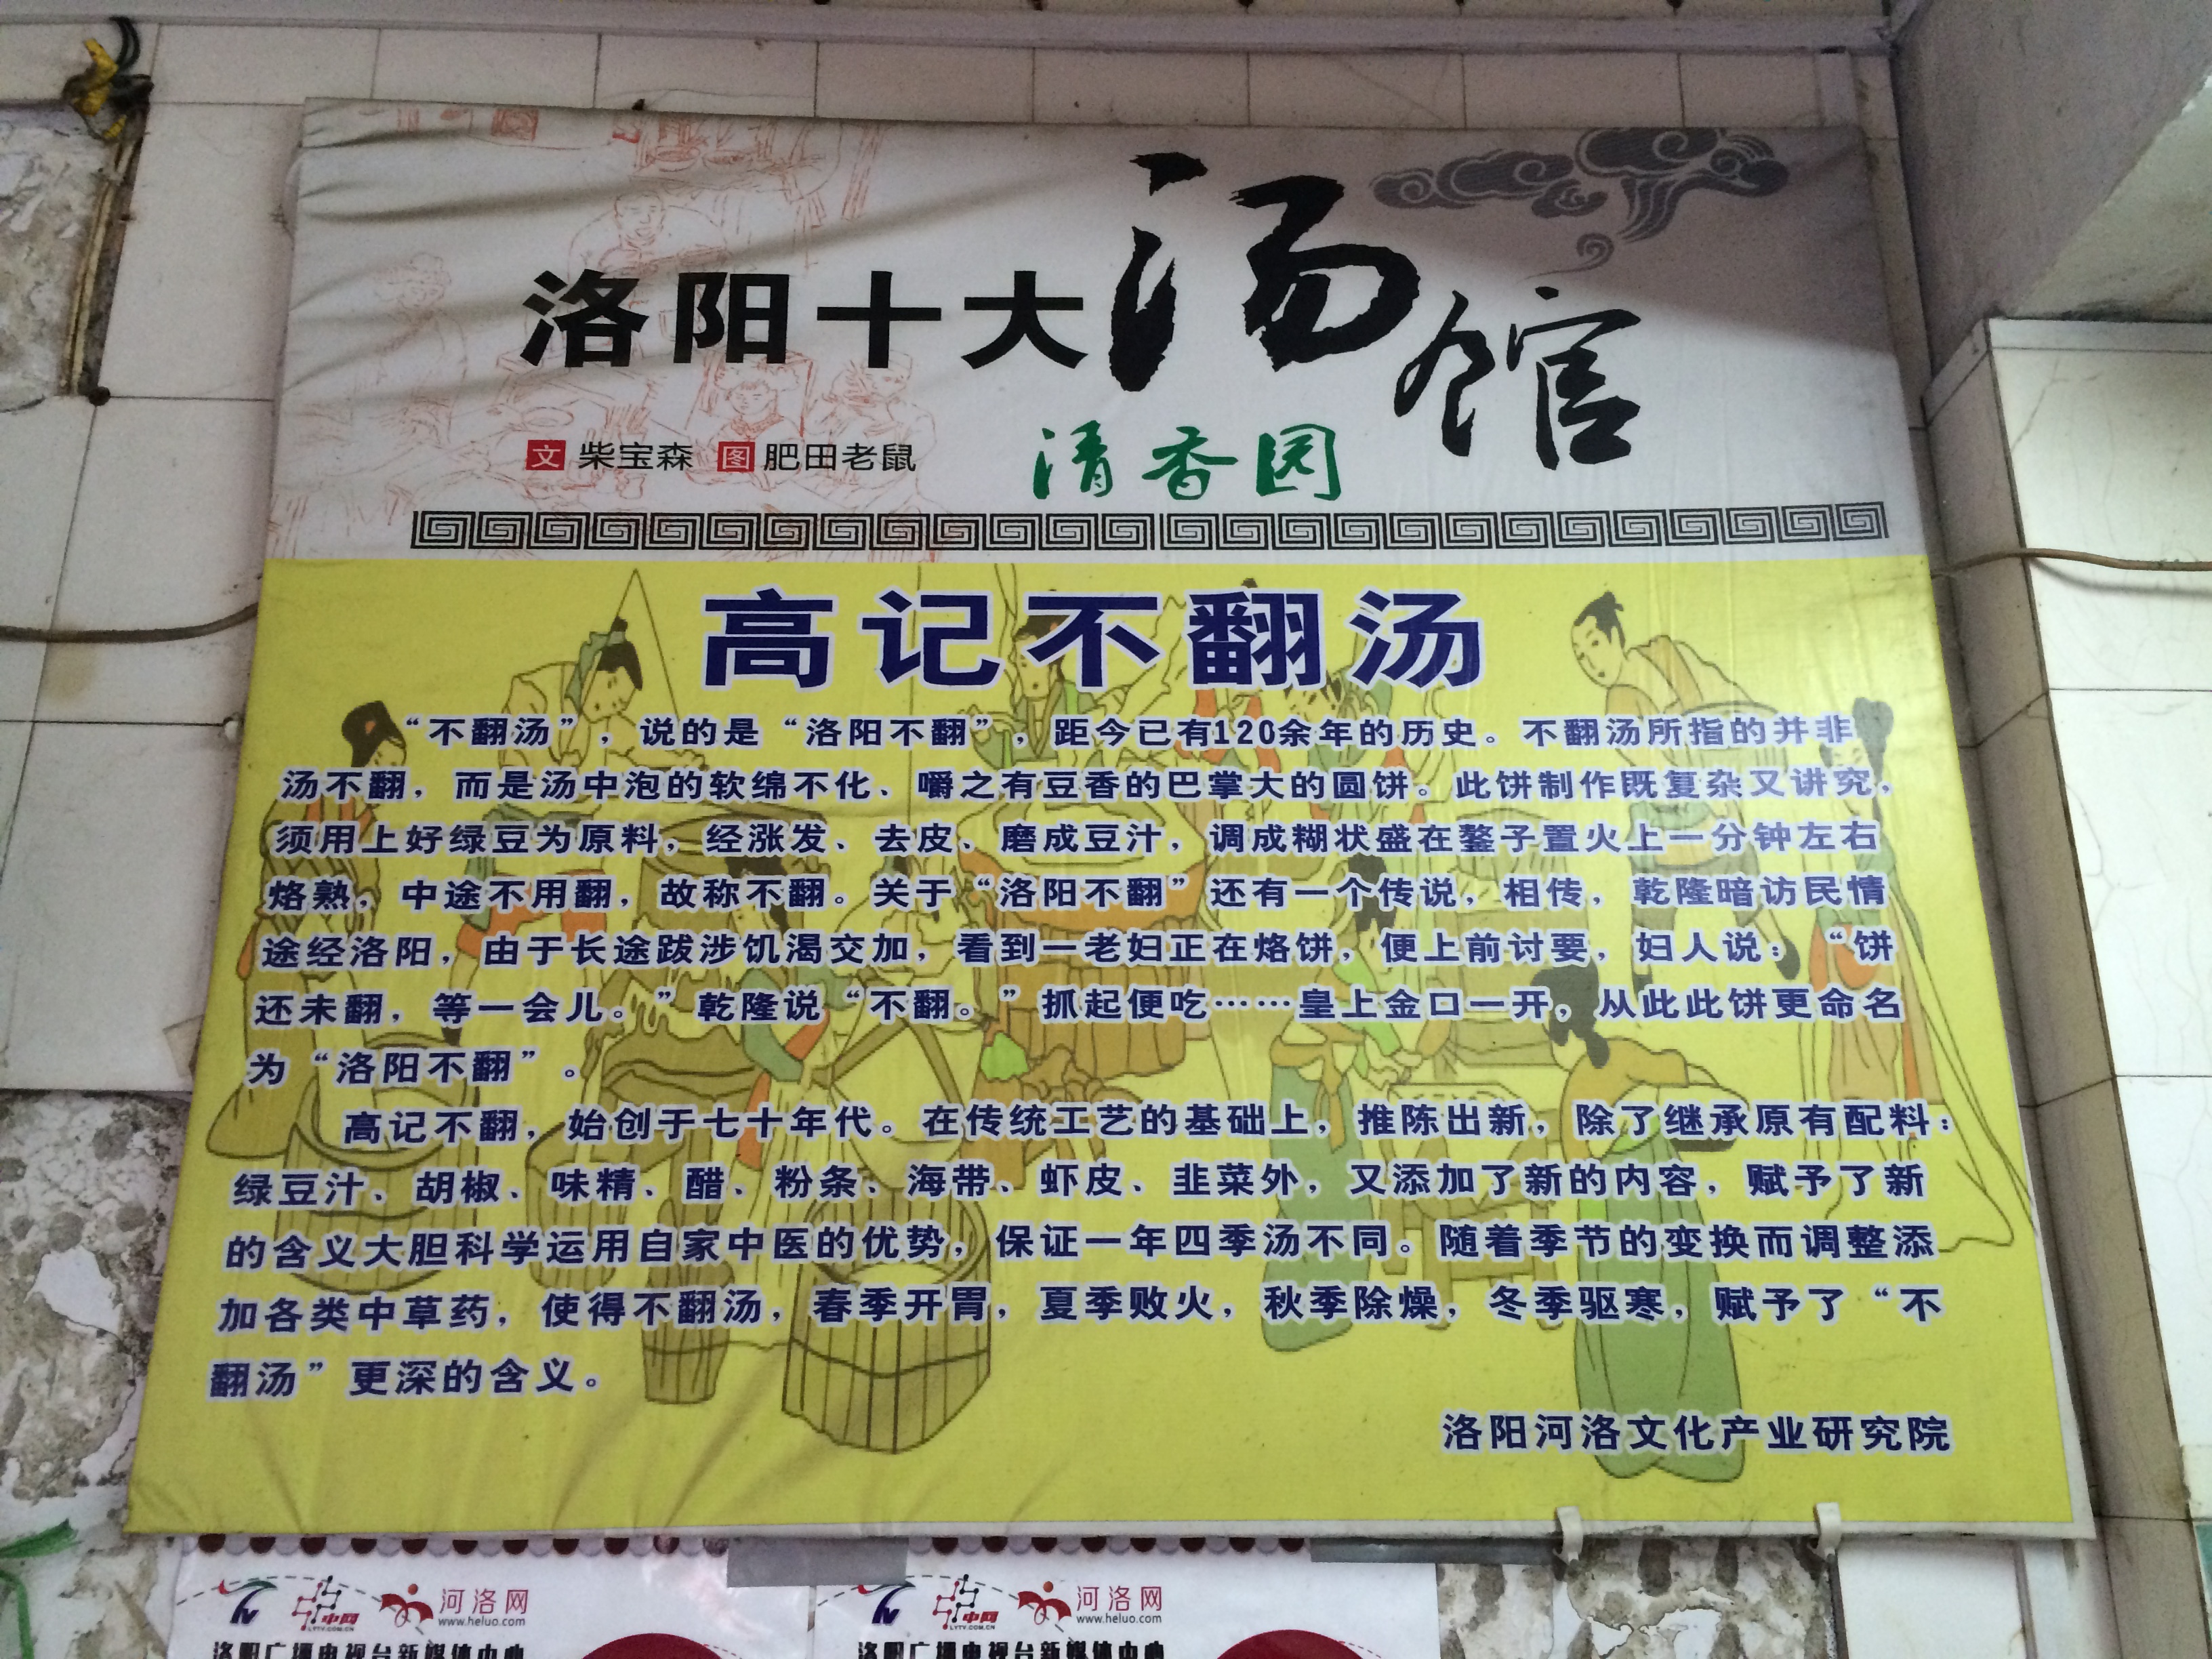 洛阳十大汤馆
文 柴宝森 图 肥田老鼠
清香园
高记不翻汤
“不翻汤”，说的是“洛阳不翻”，距今已有120余年的历史。不翻汤所指的并非
汤不翻，而是汤中泡的软绵不化、嚼之有豆香的巴掌大的圆饼。此饼制作既复杂又讲究，
须用上好绿豆为原料，经涨发、去皮、磨成豆汁，调成糊状盛在鏊子置火上一分钟左右
烙熟，中途不用翻，故称不翻。关于“洛阳不翻”还有一个传说，相传，乾隆暗访民情
途经洛阳，由于长途跋涉饥渴交加，看到一老妇正在烙饼，便上前讨要，妇人说：“饼
还未翻，等一会儿。”乾隆说“不翻。”抓起便吃……皇上金口一开，从此此饼更命名
为“洛阳不翻”。
高记不翻，始创于七十年代。在传统工艺的基础上，推陈出新，除了继承原有配料：
绿豆汁、胡椒、味精、醋、粉条、海带、虾皮、韭菜外，又添加了新的内容，赋予了新
的含义大胆科学运用自家中医的优势，保证一年四季汤不同。随着季节的变换而调整添
加各类中草药，使得不翻汤，春季开胃，夏季败火，秋季除燥，冬季驱寒，赋予了“不
翻汤”更深的含义。
洛阳河洛文化产业研究院
河洛网 河洛网
www.heluo.com www.heluo.com
LYTV.COM.CN LYTV.COM.CN
洛阳广播电视台新媒体中心 洛阳广播电视台新媒体中心